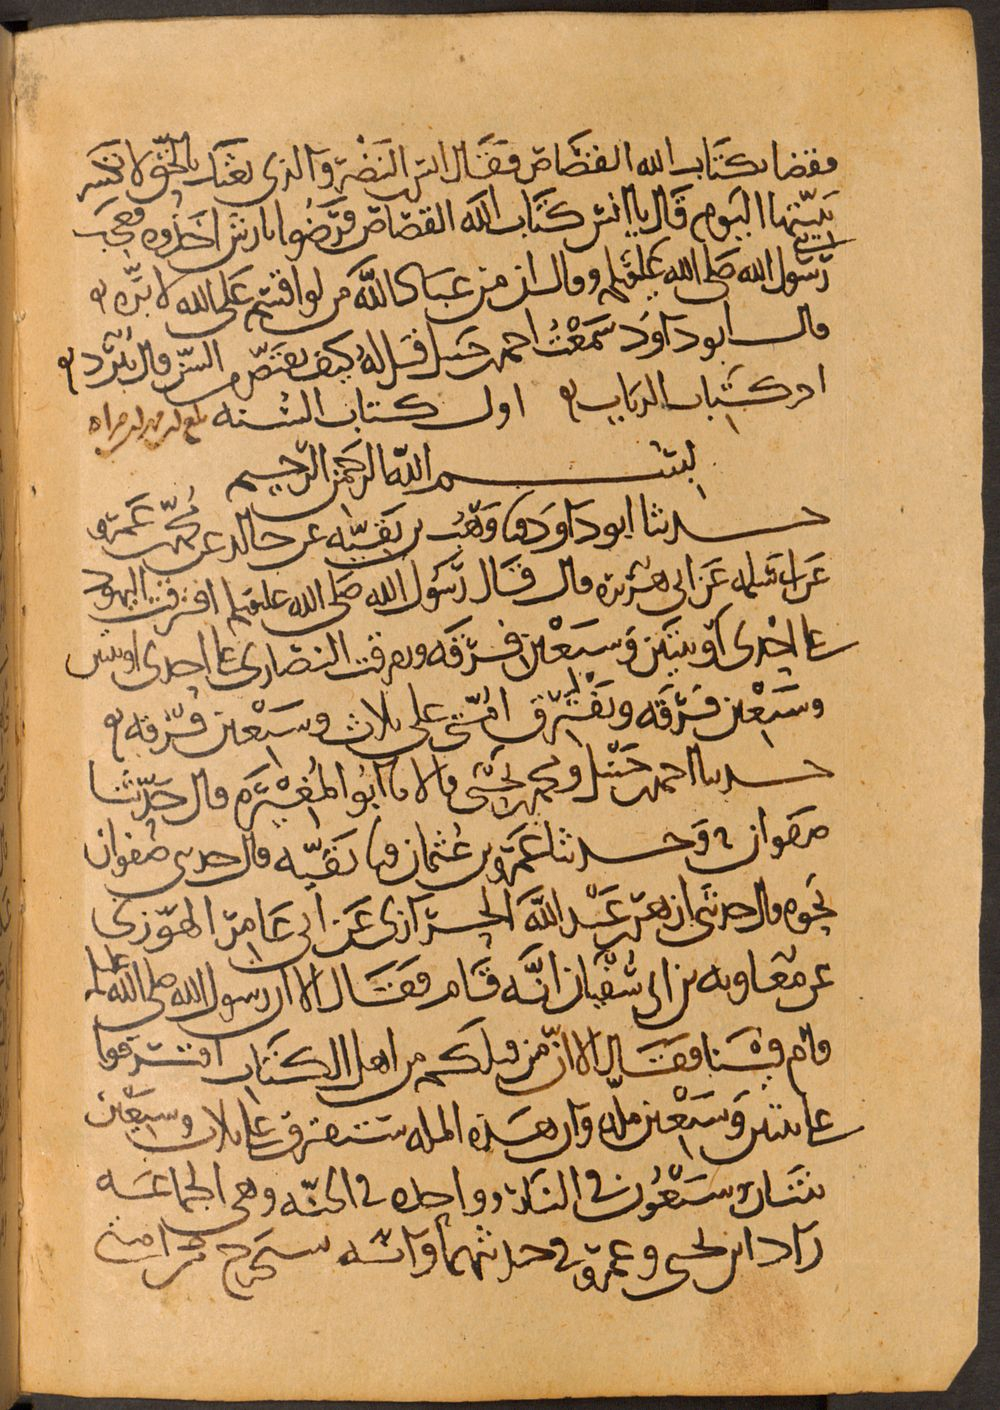 فقضا بكتاب الله القصاص فقال انس بن النضر والذي بعثك بالحق لا تكسر
ثنيتها اليوم قال يا انس كتاب الله القصاص فرضوا بارش اخذوه فعجب
رسول الله صلى الله عليه وسلم وقال ان من عباد الله من لو اقسم على الله لابره
قال ابو داود سمعت احمد بن حنبل قيل له كيف يقتص من السن قال تبرد
اخر كتاب الديات اول كتاب السنه
بسم الله الرحمن الرحيم
حدثنا ابو داود نا وهب بن بقيه عن خالد عن محمد بن عمرو
عن ابي سلمه عن ابي هريره قال قال رسول الله صلى الله عليه وسلم افترقت اليهود
على احدى او ثنتين وسبعين فرقه وتفرقت النصارى على احدى او ثنتين
وسبعين فرقه وتفترق امتي على ثلاث وسبعين فرقه
حدثنا احمد بن حنبل ومحمد بن يحيى قالا نا ابو المغيره قال حدثنا
صفوان ح وحدثنا عمرو بن عثمان نا بقيه قال حدثني صفوان
نحوه قال حدثني ازهر بن عبد الله الحرازي عن ابي عامر الهوزني
عن معاويه بن ابي سفيان انه قام فقال الا ان رسول الله صلى الله عليه وسلم
قام فينا فقال الا ان من قبلكم من اهل الكتاب افترقوا
على ثنتين وسبعين مله وان هذه المله ستفترق على ثلاث وسبعين
ثنتان وسبعون في النار وواحده في الجنه وهي الجماعه
زاد ابن يحيى وعمرو في حديثهما وانه سيخرج من امتي